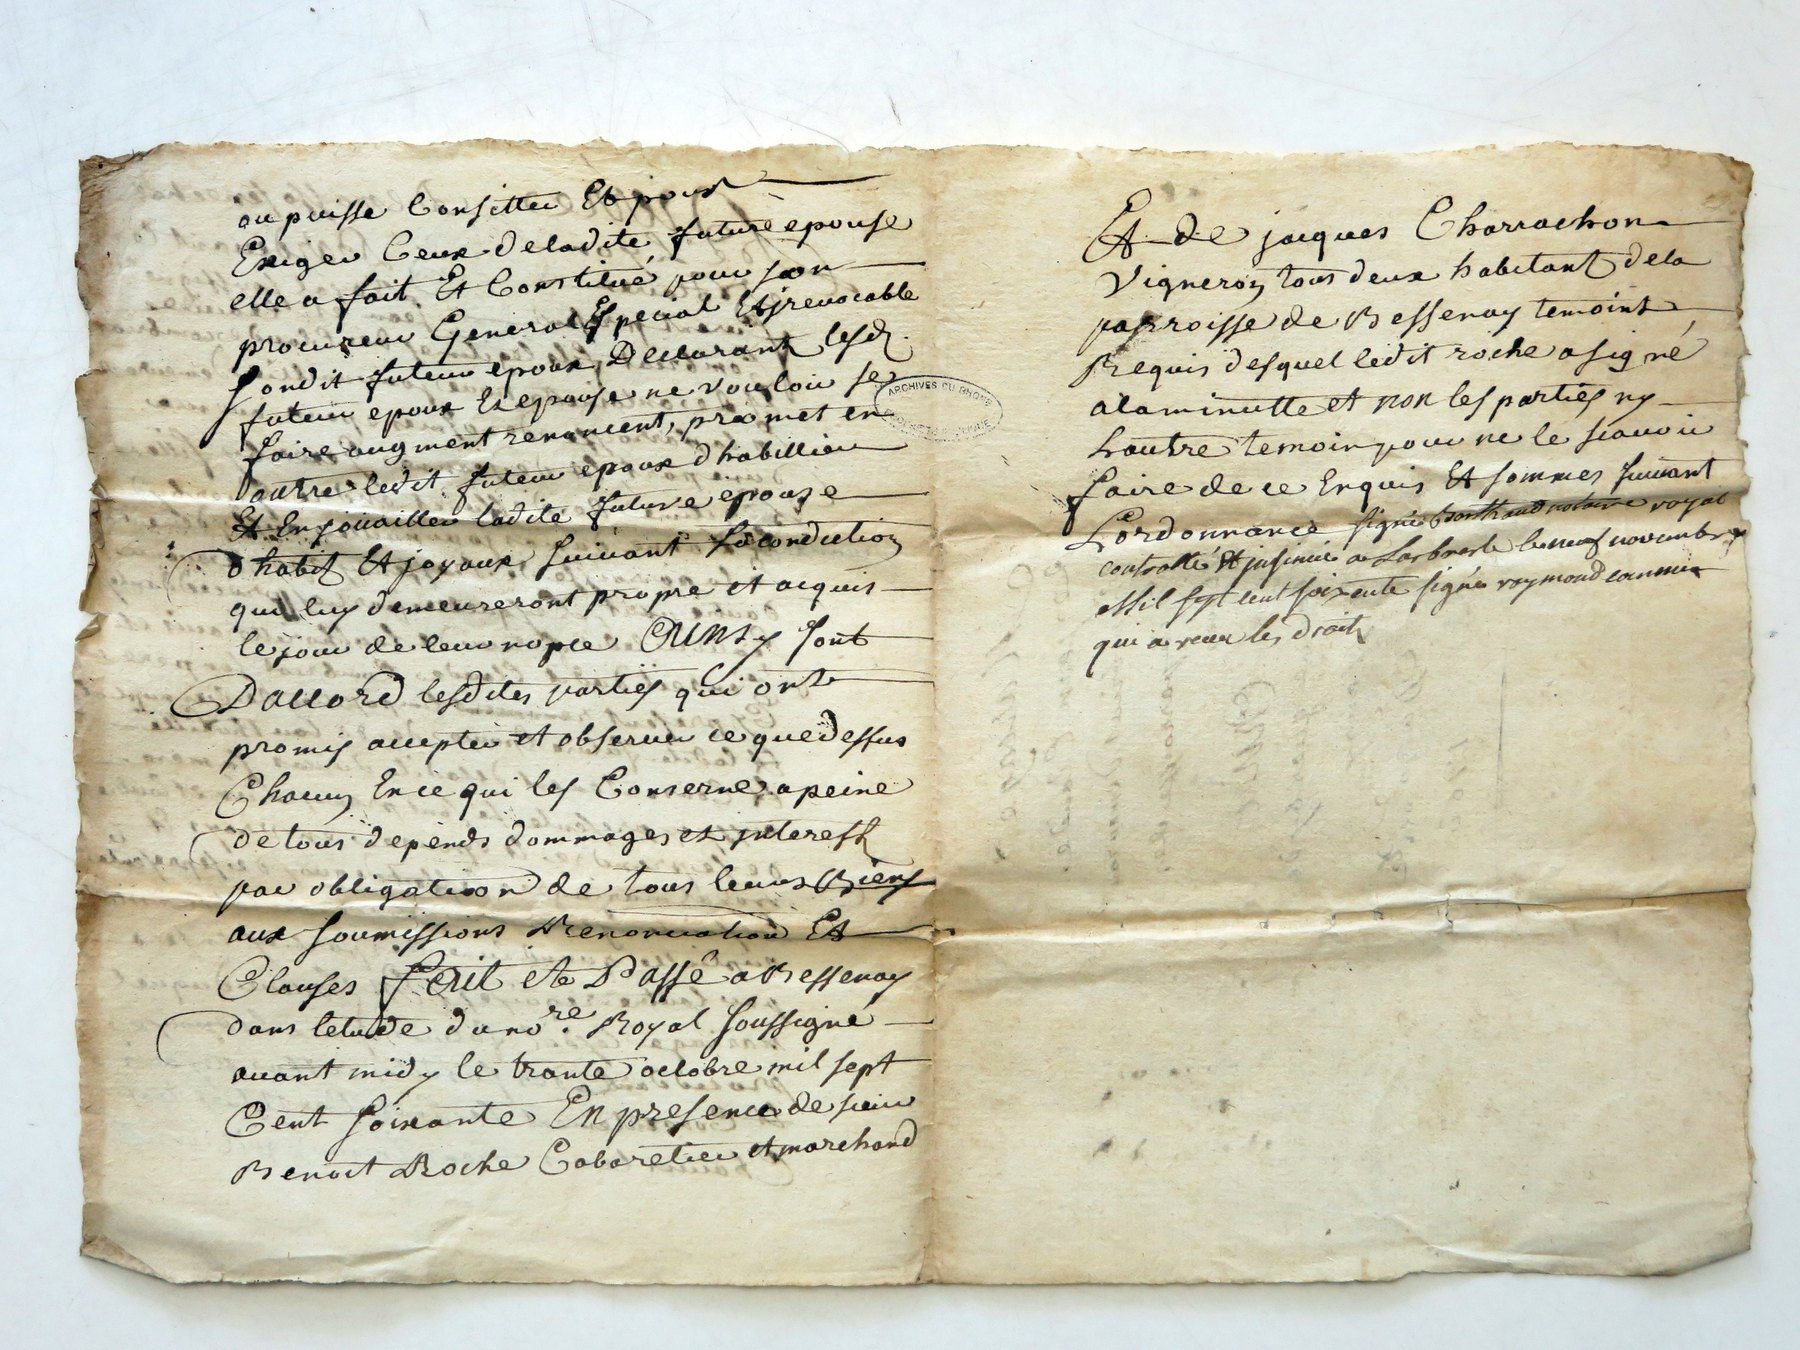 ou puisse Consister Et pour
Exiger Ceux deladite future epouse
elle a fait Et Constitué pour son
procureur General Special Et jrrevocable
sondit futeur epoux, Declarant lesd.
futeur epoux Et epouse ne vouloir se
faire augment renoncent, promet en
outre ledit futeur epoux dhabillier
Et Enjouailler ladite future epouse
dhabit Et joyaux suivant sa condiction
qui luy demeureront propre et acquis
le jour de leur nopce Ainsy sont
Daccord lesdites parties qui ont
promis accepter et observer ce que dessus
Chacun En ce qui les Conserne a peine
de tous depends dommages et jnterest
par obligation de tous leurs Biens
aux soumissions Renonciation Et
Clauses fait et Passé a Bessenay
dans letude du no.re Royal soussigné
avant midy le trante octobre mil sept
Cent soixante En presence de sieur
Benoit Roche Cabaretier et marchand
ARCHIVES DU RHONE
Et de jacques Charrachon
Vigneron tous deux habitant dela
parroisse de Bessenay temoins
Requis desquel ledit roche a signé
a la minutte et non les parties ny
Lautre temoin pour ne le scavoir
faire de ce Enquis Et sommes suivant
Lordonnance signé notaire royal
controllé Et jnsinué a Larbresle le neuf novembre
Mil sept cent soixente signé raymond commis
qui a receu les droits